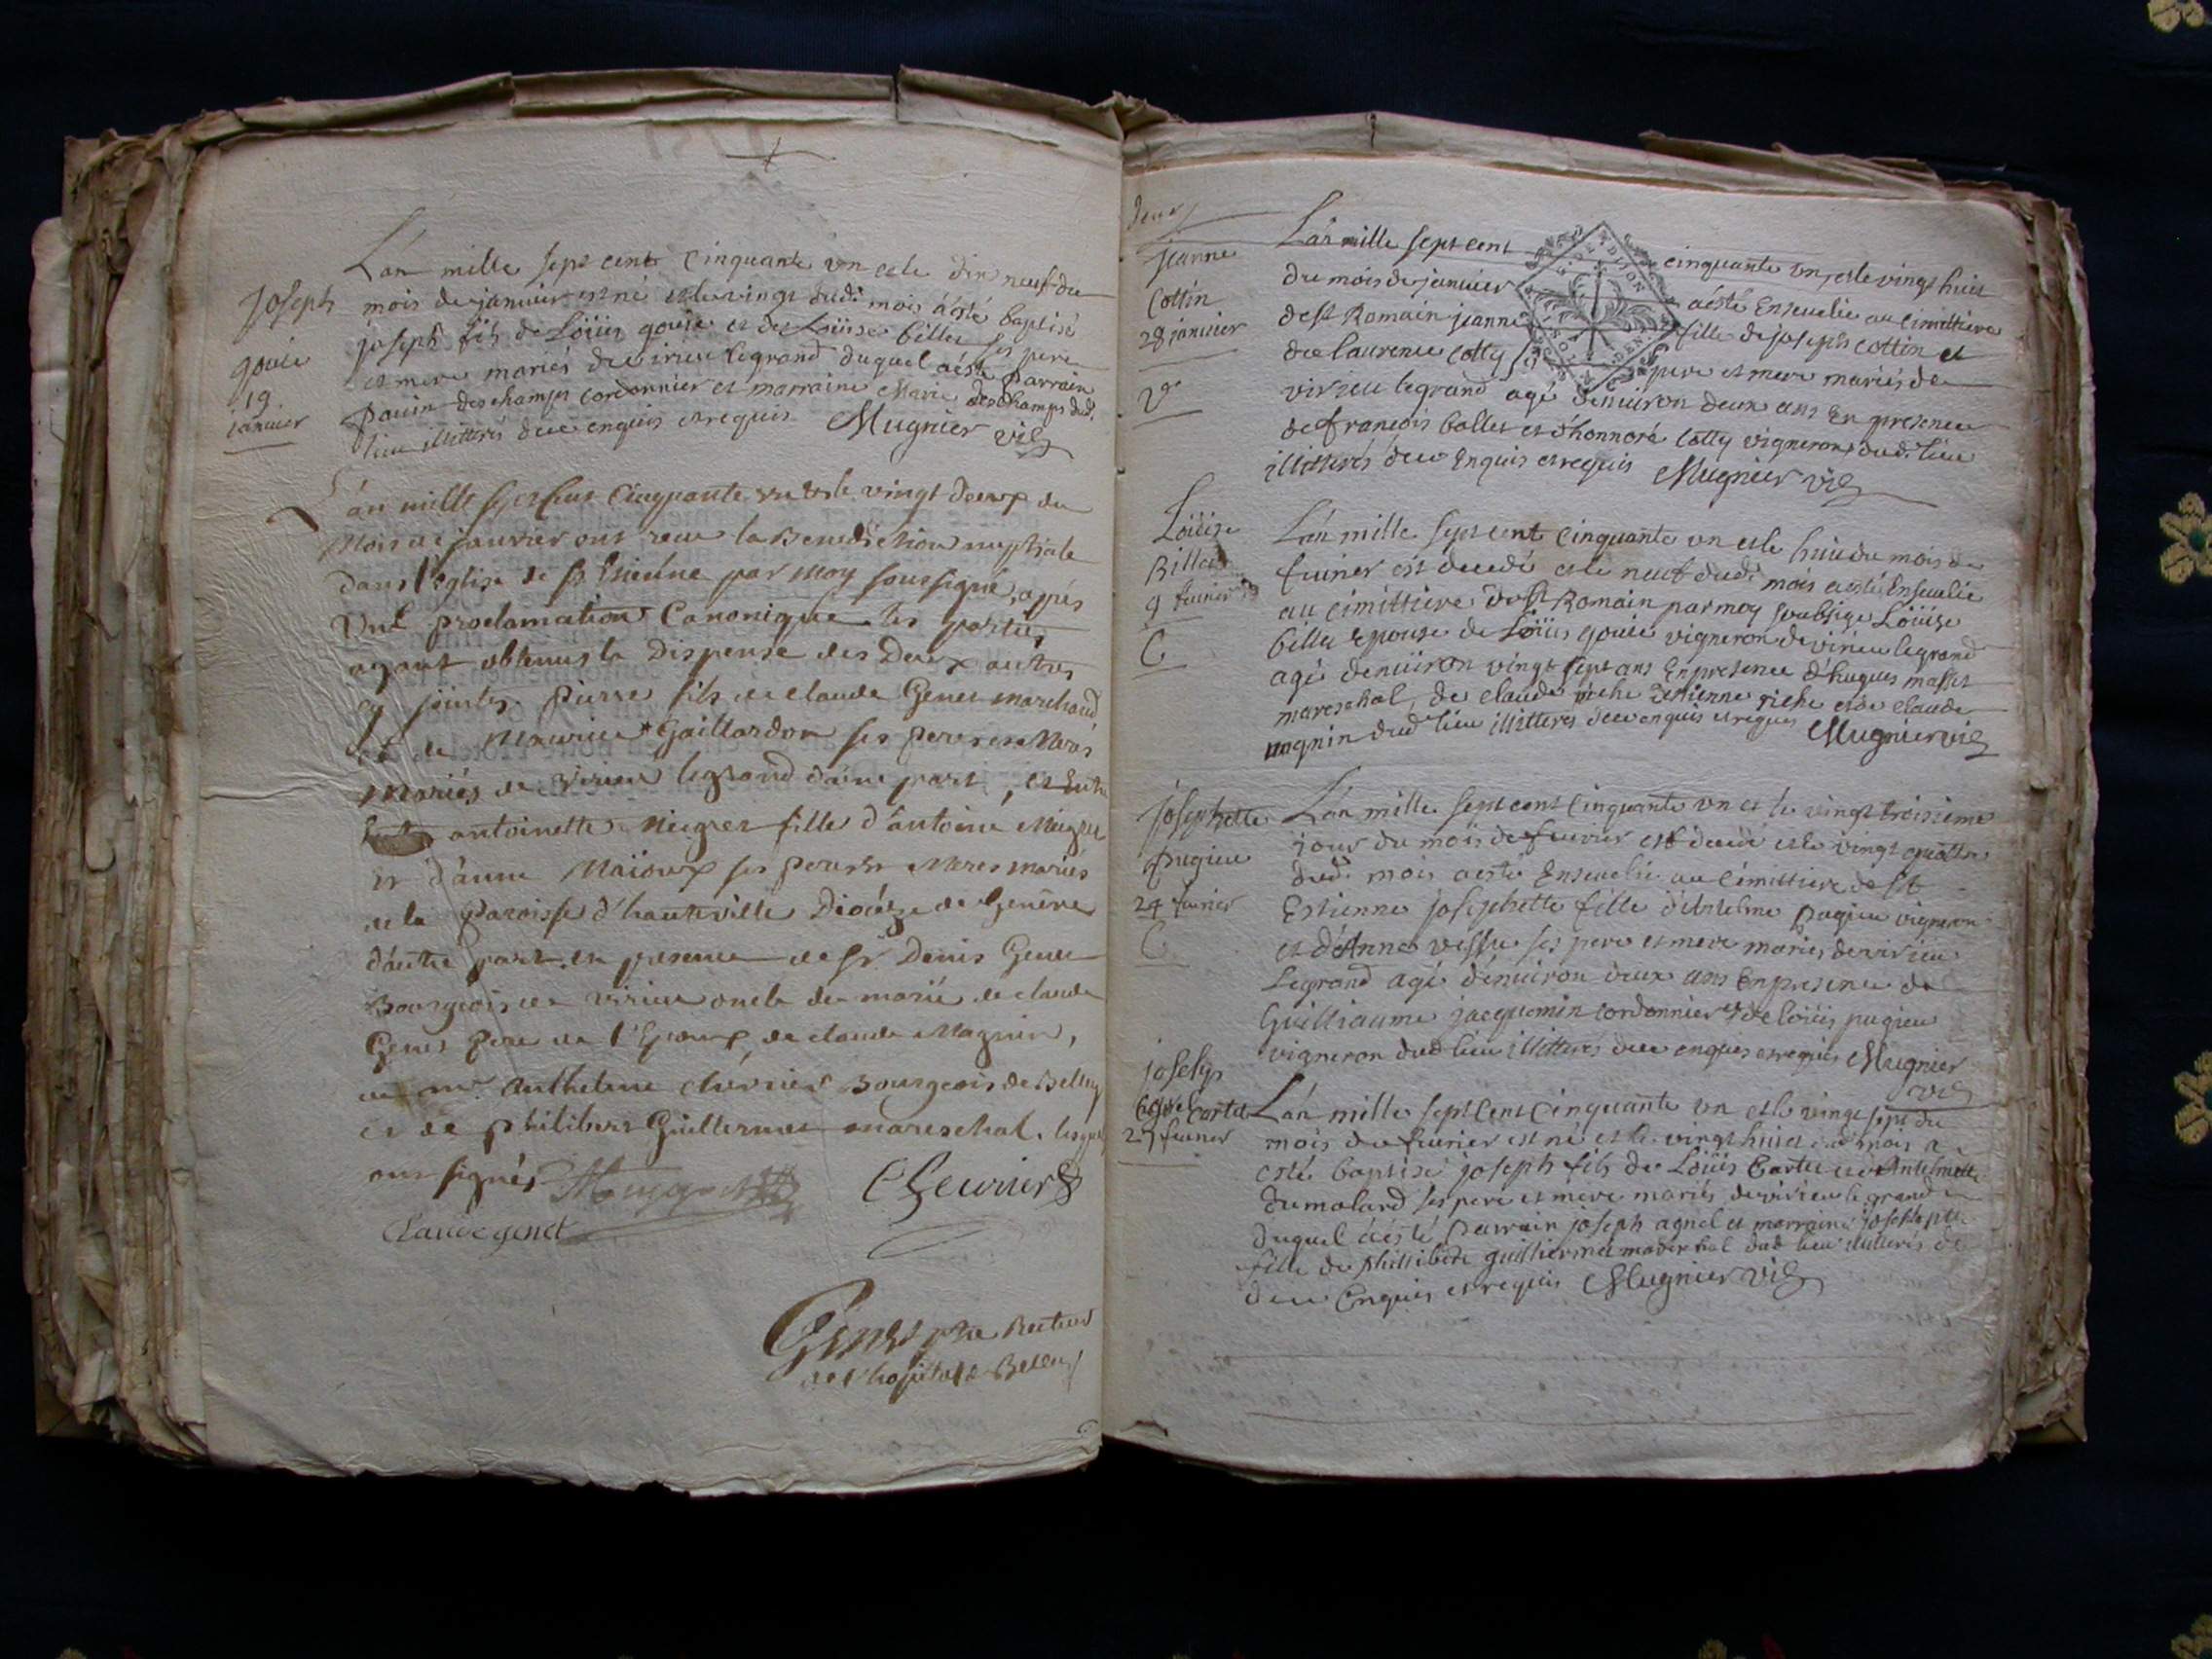 L'an mille sept cent cinquante un et le dix neuf du
Joseph
mois de janvier est né et le vingt dudi mois a esté baptisé
joseph fils de Loüis gouie et de Loüise billet ses pere
gouie
et mere mariés de virieu legrand duquel a esté parrain
19
pauin deschamps cordonnier et marraine Marie deschamps dudi
janvier
lieu illitterés de ce enquis et requis Mugnier vic
L'an mille sept cent cinquante un et le vingt deux du
Mois de janvier ont receu la Benediction nuptiale
dans l'eglise de st Estienne par moy soussigné, après
une proclamation Canonique les parties
ayant obtenus la Dispense des Deux autres
cy jointe, pierre fils de claude Genet marchand
et de Maurice Gaillardon ses pere et Meres
Mariés de Virieu legrand d'aune part, et Entre
antoinette Megret fille d'antoine Megret
et d'anne Maioux ses peres et Meres mariés
de la Paroisse d'hauteville Diocèze de Genève
d'autre part en presence de Sr Denis Genet
Bourgeois de virieu oncle du marié de claude
Genet Pere de l'Epoux, de claude Magnin,
de mr Anthelme chevrier Bourgeois de Belley
et de philibert Guillermet mareschal, lesquels
ont signés
Chevrier
Claude genet
Genet ptre Recteur
de l'hopital de Belley
deux
L'an mille sept cent cinquante un, et le vingt huit
jeanne
du mois de janvier a esté Enseuelie au cimittiere
Cottin
de st Romain jeanne fille de joseph cottin et
28 janvier
de laurence cotty ses pere et mere mariés de
virieu legrand agé d'enuiron deux ans En presence
V
de françois ballet et d'honnoré cotty vignerons dud. lieu
illitterés de ce Enquis et requis Mugnier vic
Loüise
L'an mille sept cent cinquante un et le huit du mois de
Billet
feurier est decedé et le neuf dudi mois a esté Enseuelie
9 feurier
au cimittiere de st Romain par moy soubsigé Loüise
C
billet Epouse de Loüis gouie vigneron de virieu legrand
agé denuiron vingt sept ans En presence d'hugues masset
mareschal, de claude riche Estienne riche et de claude
magnin dud lieu illitterés de ce enquis et requis Mugnier vic
Josephette
L'an mille sept cent cinquante un et le vingt troisieme
pugieu
jour du mois de feurier est decedé et le vingt quattre
dudi mois a esté Enseuelie au cimittiere de st
24 feurier
Estienne josephette fille d'Antelme pugieu vigneron
C
et d'Anne vessu ses pere et mere mariés de virieu
Legrand agé d'enuiron deux ans En presence de
Guilliaume jacquemin cordonnier et de loüis pugieu
vigneron dud lieu illitterés de ce enquis et requis Mugnier
vic
joseph
cartet
L'an mille sept Cent Cinquante un et le vingt sept du
27 feurier
mois de feurier est né et le vingt huit dud mois a
esté baptisé joseph fils de Loüis Cartet et d'Antelmette
dumolard ses pere et mere mariés de virieu le grand
duquel a esté parrain joseph agnel et marraine josephte
fille de phillibert guilliermet mareschal dud lieu illitterés de
de ce Enquis et requis Mugnier vic